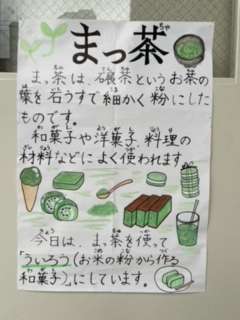 まっ茶
まっ茶は、碾茶というお茶の
葉を石うすで細かく粉にした
ものです。
和菓子や洋菓子、料理の
材料などによく使われます。
今日は、まっ茶を使って
「ういろう(お米の粉から作る
和菓子)」にしています。